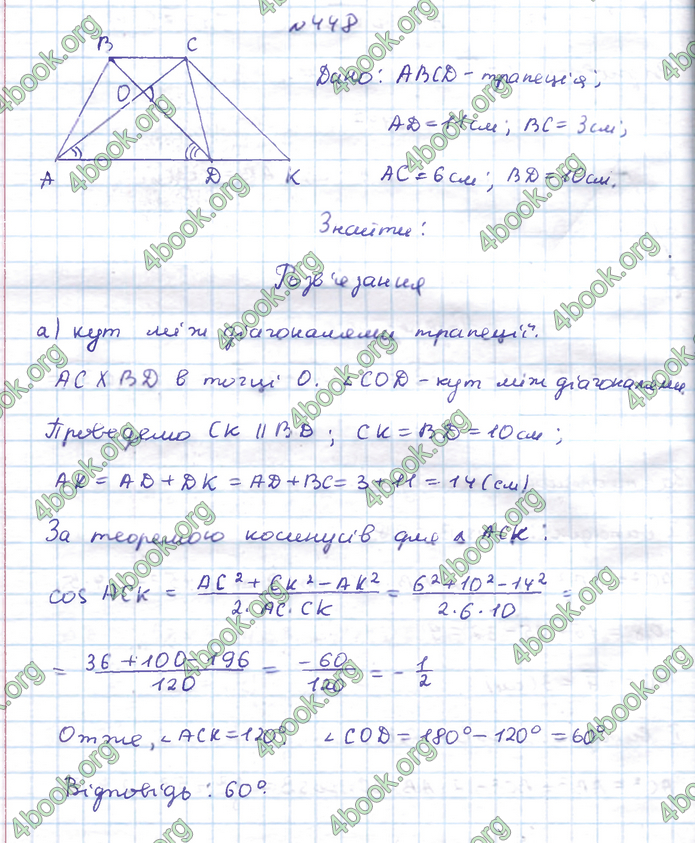 №448
B C
O
A D K
Дано: ABCD - трапеція;
AD = 11см; BC = 3см;
AC = 6см; BD = 10см.
Знайти:
Розв'язання
а) кут між діагоналями трапеції.
AC X BD в точці O. ∠COD - кут між діагоналями.
Проведемо CK || BD; CK = BD = 10см;
AK = AD + DK = AD + BC = 3 + 11 = 14 (см)
За теоремою косинусів для Δ ACK:
cos ACK = AC² + CK² - AK² / 2·AC·CK = 6² + 10² - 14² / 2·6·10 =
= 36 + 100 - 196 / 120 = -60 / 120 = - 1/2
Отже, ∠ACK = 120° ∠COD = 180° - 120° = 60°
Відповідь: 60°.
4book.org